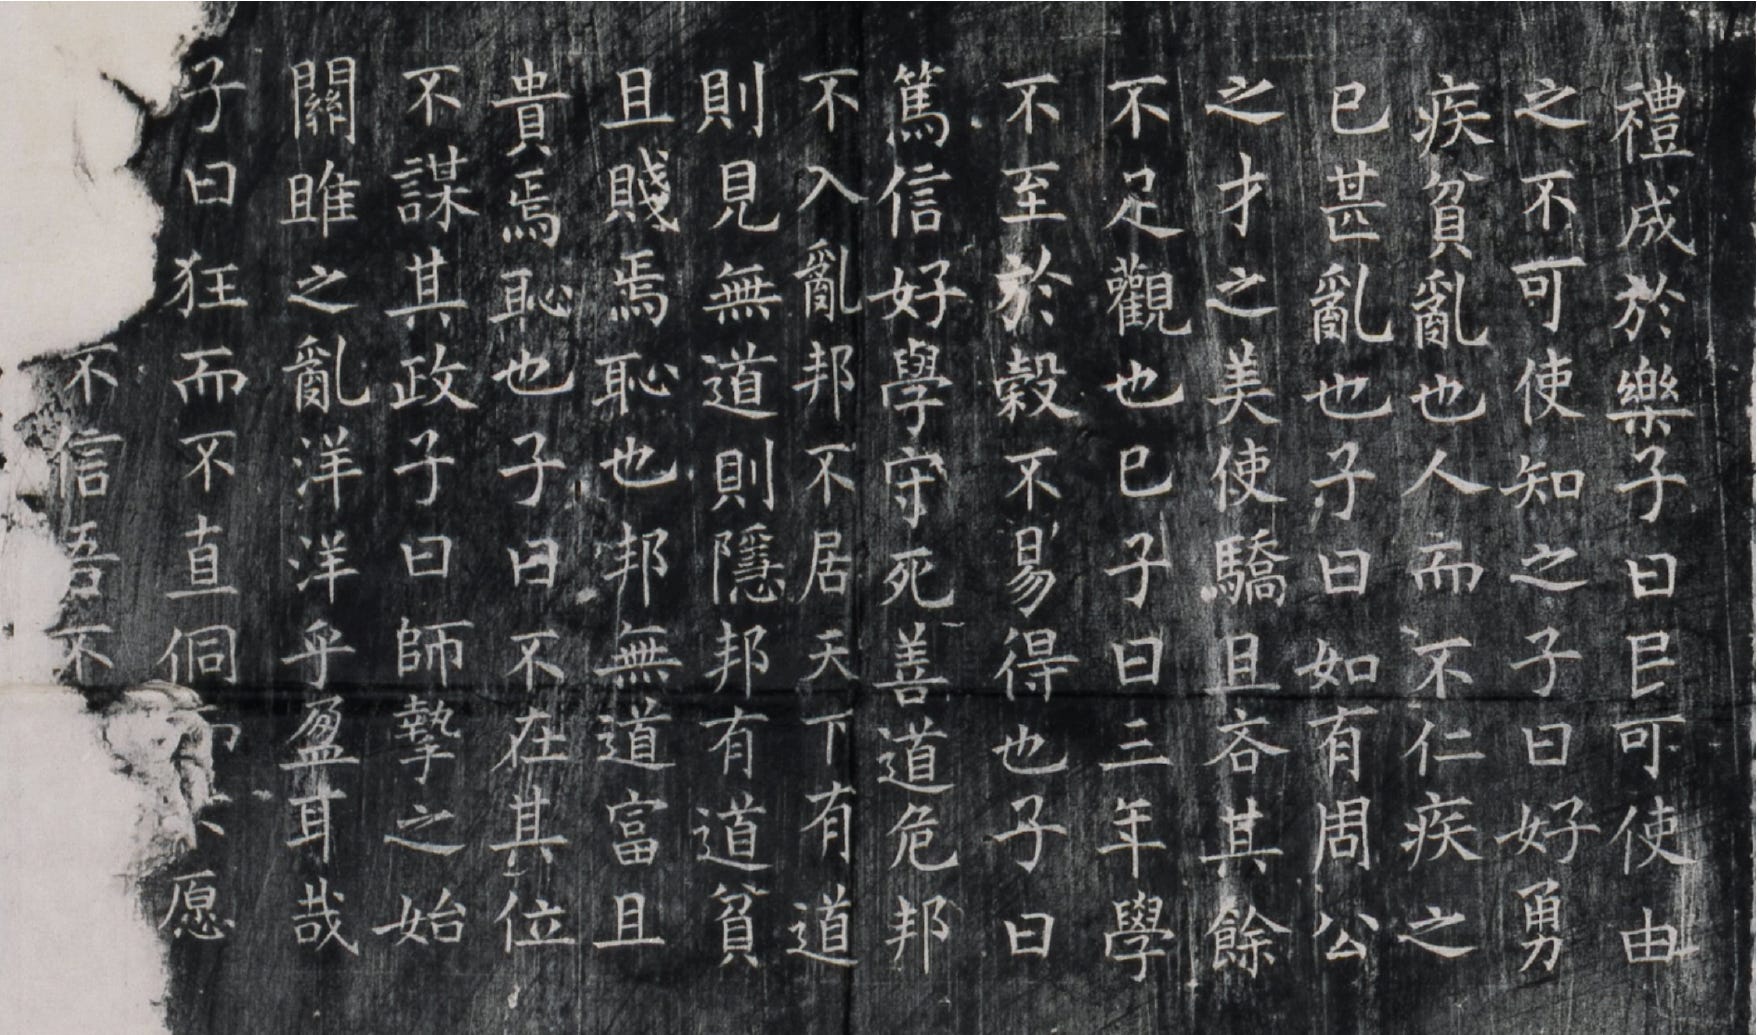 禮成於樂子曰民可使由
之不可使知之子曰好勇
疾貧亂也人而不仁疾之
已甚亂也子曰如有周公
之才之美使驕且吝其餘
不足觀也已子曰三年學
不至於穀不易得也子曰
篤信好學守死善道危邦
不入亂邦不居天下有道
則見無道則隱邦有道貧
且賤焉恥也邦無道富且
貴焉恥也子曰不在其位
不謀其政子曰師摯之始
關雎之亂洋洋乎盈耳哉
子曰狂而不直侗愿
不信吾不